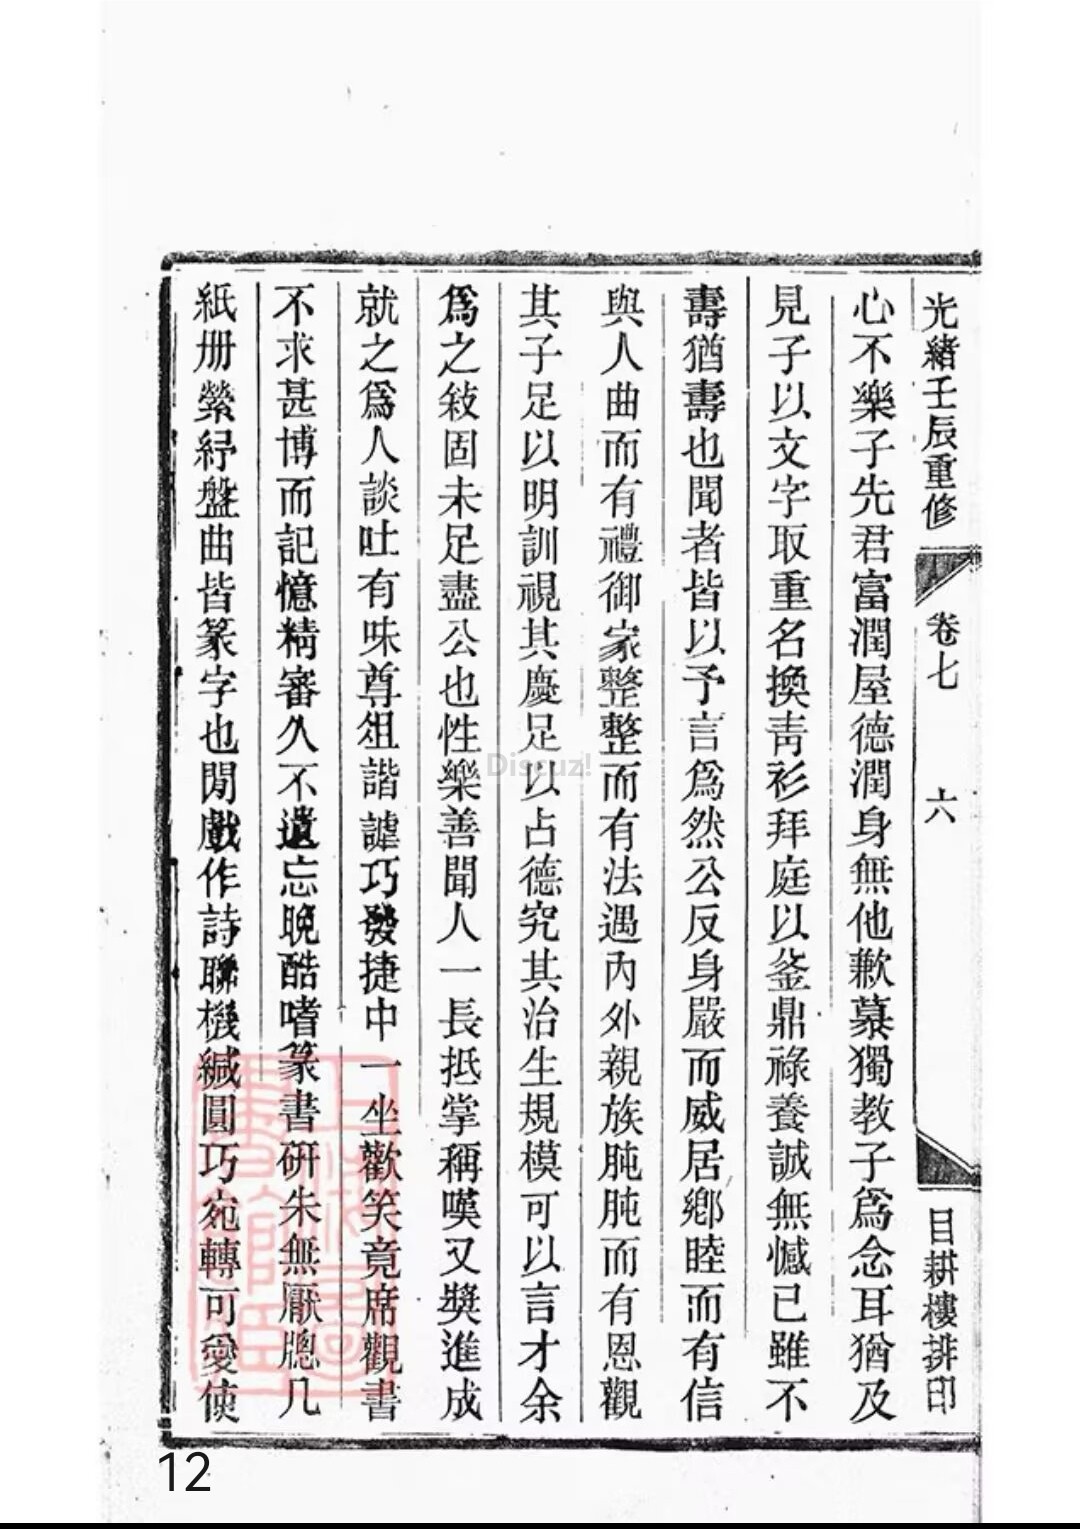 光緒壬辰重修 卷七 六 目耕樓排印
心不樂子先君富潤屋德潤身無他歉慕獨教子爲念耳猶及
見子以文字取重名換靑衫拜庭以釜鼎祿養誠無憾已雖不
壽猶壽也聞者皆以予言爲然公反身嚴而威居鄕睦而有信
與人曲而有禮御家整整而有法遇內外親族肫肫而有恩觀
其子足以明訓視其慶足以占德究其治生規模可以言才余
爲之敍固未足盡公也性樂善聞人一長抵掌稱嘆又奬進成
就之爲人談吐有味尊俎諧謔巧發捷中一坐歡笑竟席觀書
不求甚博而記憶精審久不遺忘晚酷嗜篆書硏朱無厭牕几
紙册縈紆盤曲皆篆字也閒戲作詩聯機緘圓巧宛轉可愛使
Discuz!
上海圖書館藏
12